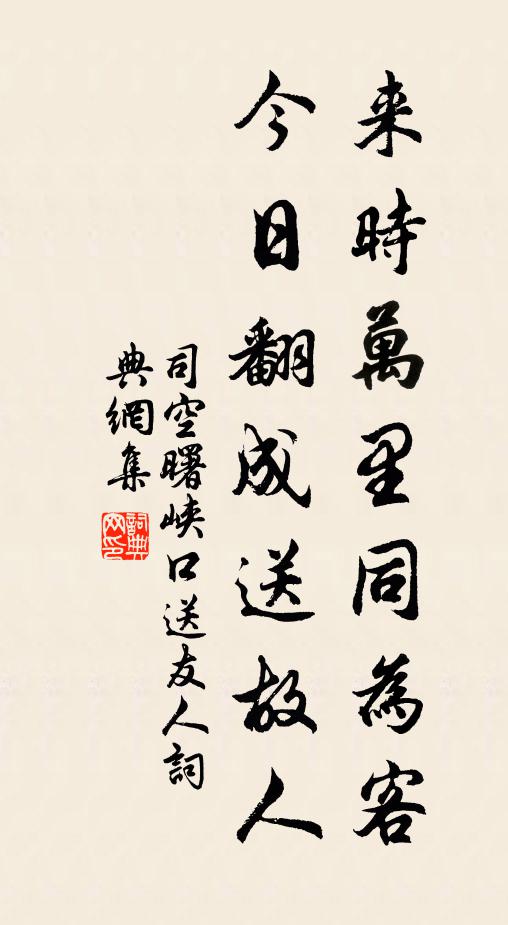 来時萬里同為客
今日翻成送故人
司空曙峽口送友人詞
典網集
詞典網印